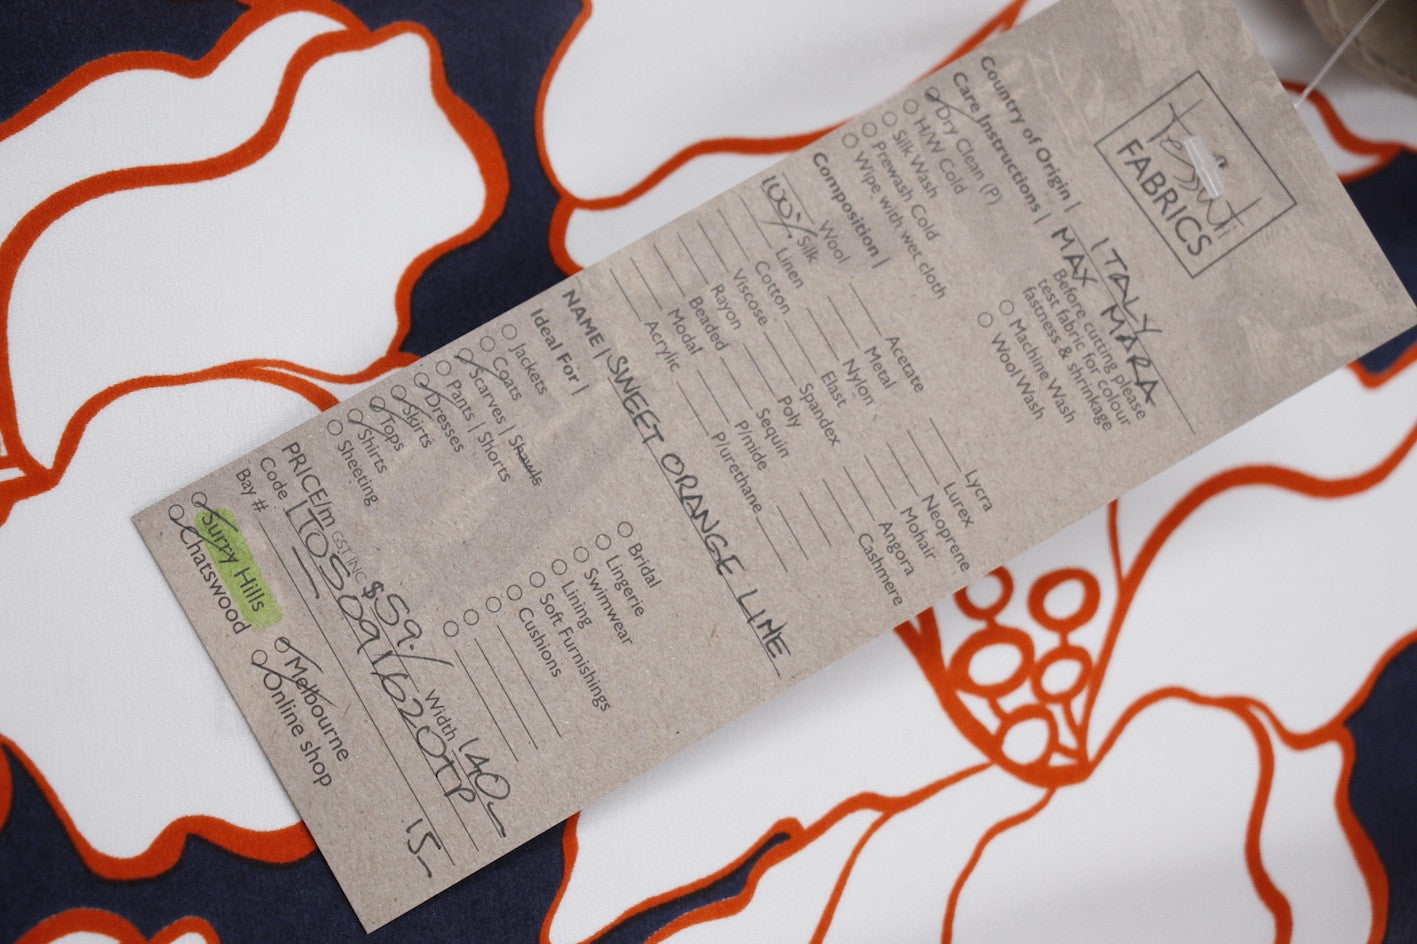 Tessuti
FABRICS
Country of Origin | ITALY
MAX MARA
Care Instructions | Before cutting please
test fabric for colour
fastness & shrinkage
Dry Clean (P)
H/W Cold
Silk Wash
Prewash Cold
Wipe with wet cloth
Machine Wash
Wool Wash
Composition |
Wool
100% Silk
Linen
Cotton
Viscose
Rayon
Beaded
Modal
Acrylic
Acetate
Metal
Nylon
Elast
Spandex
Poly
Sequin
P/mide
P/urethane
Lycra
Lurex
Neoprene
Mohair
Angora
Cashmere
NAME | SWEET ORANGE LINE
Ideal For |
Jackets
Coats
Scarves | Shawls
Pants | Shorts
Dresses
Skirts
Tops
Shirts
Sheeting
Bridal
Lingerie
Swimwear
Lining
Soft Furnishings
Cushions
PRICE/m GST INC $59./ Width 140-
Code | TOS091620TP
Bay # 15-
Surry Hills
Chatswood
Melbourne
Online shop